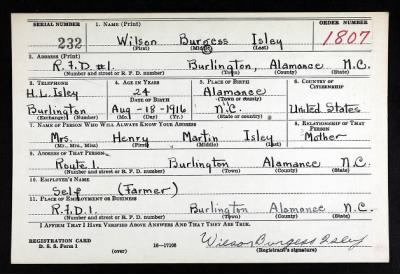 SERIAL NUMBER 1. NAME (Print) ORDER NUMBER
232 Wilson Burgess Isley 1807
(First) (Middle) (Last)
2. ADDRESS (Print)
R.F.D #1. Burlington, Alamance N.C.
(Number and street or R. F. D. number) (Town) (County) (State)
3. TELEPHONE 4. AGE IN YEARS 5. PLACE OF BIRTH 6. COUNTRY OF CITIZENSHIP
H.L. Isley 24 Alamance
DATE OF BIRTH (Town or county)
Burlington Aug-18-1916 N.C. United States
(Exchange) (Number) (Mo.) (Day) (Yr.) (State or country)
7. NAME OF PERSON WHO WILL ALWAYS KNOW YOUR ADDRESS 8. RELATIONSHIP OF THAT PERSON
Mrs. Henry Martin Isley Mother
(Mr., Mrs., Miss) (First) (Middle) (Last)
9. ADDRESS OF THAT PERSON
Route 1. Burlington Alamance N.C.
(Number and street or R. F. D. number) (Town) (County) (State)
10. EMPLOYER'S NAME
Self (Farmer)
11. PLACE OF EMPLOYMENT OR BUSINESS
R.F.D 1. Burlington Alamance N.C.
(Number and street or R. F. D. number) (Town) (County) (State)
I AFFIRM THAT I HAVE VERIFIED ABOVE ANSWERS AND THAT THEY ARE TRUE.
REGISTRATION CARD
D. S. S. Form 1 (over) 16-17105 Wilson Burgess Isley
(Registrant's signature)